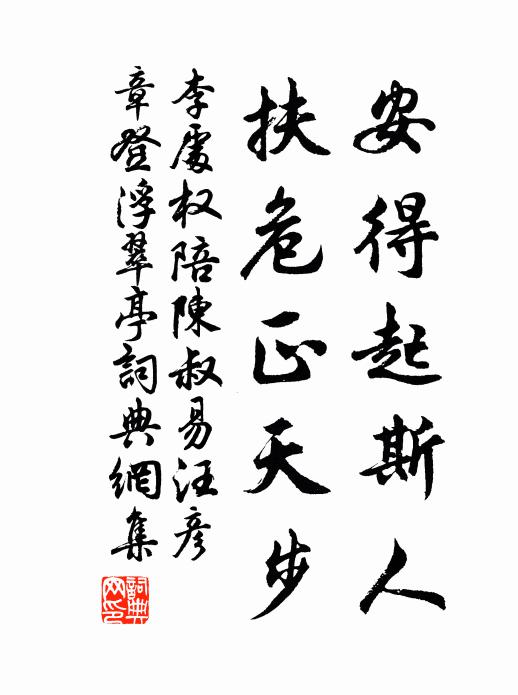 安得起斯人
扶危正天步
李處权陪陳叔易汪彦
章登浮翠亭詞典網集
詞典網印